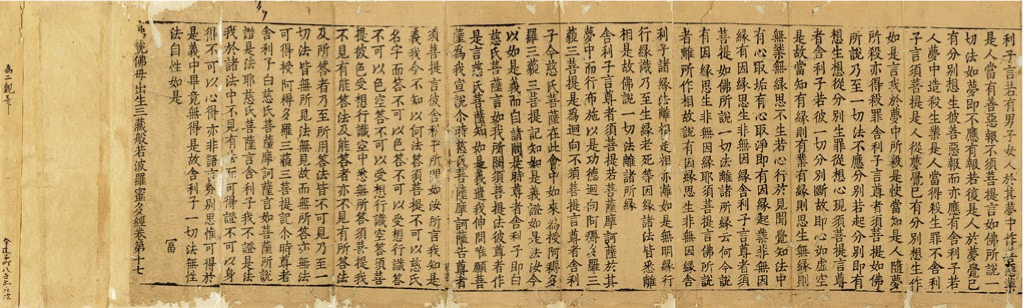 利子言若有男子女人於其夢中作善惡業
是人當有善惡報不須菩提言如佛所說一
切法如夢即不應有報若復是人於夢覺已
有分別想生彼善惡報而亦應有舍利子若
人夢中造殺生業是人當得殺生罪不舍利
子言須菩提是人從夢覺已有分別想生作
如是言我於夢中所殺是快當知是人隨夢
所殺亦得殺罪舍利子言尊者須菩提如佛
所說乃至一切法不應分別若起分別即有
想生想從分別生罪從想心現須菩提言尊
者舍利子若彼一切分別斷故即心如虛空
是故當知有緣則有業有緣則思生無緣則
無業無緣思不生若心行於見聞覺知法中
有心取垢有心取淨即有因緣起業非無因
緣有因緣思生非無因緣舍利子言尊者須
菩提如佛所說一切法離諸所緣云何今說
有因緣思生非無因緣耶須菩提言佛所說
者離所作相故說有因緣思生非無因緣舍
利子諸緣離相是無明緣行
行緣識乃至生緣老死等因緣諸法皆悉離
相是故佛說一切法離諸所緣
舍利子言尊者須菩提若菩薩摩訶薩於其
夢中而行布施以是功德迴向阿耨多羅三
藐三菩提是為迴向不須菩提言尊者舍利
子今慈氏菩薩在此會中如來為授阿耨多
羅三藐三菩提記知如是義證如是法汝今
以如是義而自請問是時尊者舍利子即白
慈氏菩薩言如我所問須菩提法彼尊者作
是言慈氏菩薩知如是義遣我伸問唯願菩
薩為我宣說尒時慈氏菩薩摩訶薩告尊者
須菩提言彼舍利子所問如汝所言我知是
義我今不知以何法答須菩提不可以慈氏
名字而答不可以色答不可以受想行識答
不可以色空答不可以受想行識空答須菩
提彼色受想行識空中悉無所答須菩提我
不見有能答法及能答者亦不見有所答法
及所答者乃至所用答法皆不可見乃至一
切法皆無所見法無所見故而無有法
可得授阿耨多羅三藐三菩提記尒時尊者
舍利子白慈氏菩薩摩訶薩言如菩薩所說
證是法耶慈氏菩薩言舍利子我不證是法
我於諸法中不見有法而可得證不可以身
得不可以心得亦非語言分別思惟可得於
是義中畢竟無得是故舍利子一切法無性
法自性如是
佛說佛母出生三法藏般若波羅蜜多經卷第十七